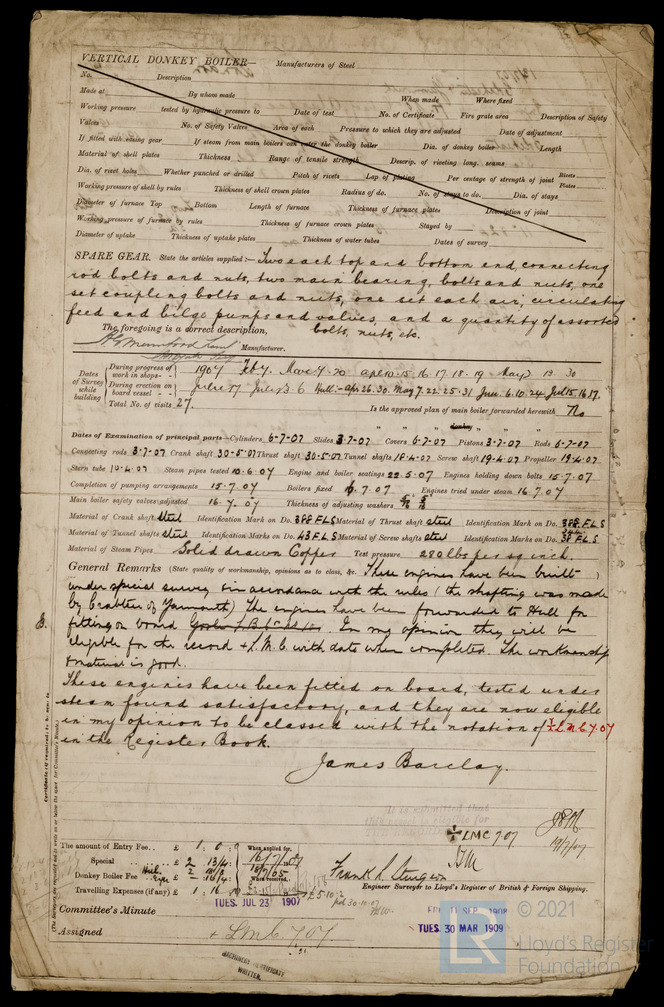 VERTICAL DONKEY BOILER— Manufacturers of Steel
No. Description
Made at By whom made When made Where fixed
Working pressure tested by hydraulic pressure to Date of test No. of Certificate Fire grate area Description of Safety
Valves No. of Safety Valves Area of each Pressure to which they are adjusted Date of adjustment
If fitted with easing gear If steam from main boilers can enter the donkey boiler Dia. of donkey boiler Length
Material of shell plates Thickness Range of tensile strength Descrip. of riveting long. seams
Dia. of rivet holes Whether punched or drilled Pitch of rivets Lap of plating Per centage of strength of joint Rivets Plates
Working pressure of shell by rules Thickness of shell crown plates Radius of do. No. of stays to do. Dia. of stays
Diameter of furnace Top Bottom Length of furnace Thickness of furnace plates Description of joint
Working pressure of furnace by rules Thickness of furnace crown plates Stayed by
Diameter of uptake Thickness of uptake plates Thickness of water tubes Dates of survey
SPARE GEAR. State the articles supplied:— Two each top and bottom end, connecting
rod bolts and nuts, two main bearing, bolts and nuts, one
set coupling bolts and nuts, one set each air, circulating
feed and bilge pumps and valves, and a quantity of assorted
The foregoing is a correct description, bolts, nuts, etc.
Manufacturer.
Dates of Survey while building
During progress of work in shops - - 1907 Feb 7. Mar 7. 20 Apl 10. 15. 16. 17. 18. 19 May 3. 13. 30
During erection on board vessel - - June 17 July 3. 6 Hull:- Apr. 26. 30. May 7. 22. 25. 31 June. 6. 10. 24. Jul 15. 16. 17.
Total No. of visits 27.
Is the approved plan of main boiler forwarded herewith No
" " " donkey " " "
Dates of Examination of principal parts—Cylinders 6-7-07 Slides 3-7-07 Covers 6-7-07 Pistons 3-7-07 Rods 6-7-07
Connecting rods 3-7-07 Crank shaft 30-5-07 Thrust shaft 30-5-07 Tunnel shafts 18-4-07 Screw shaft 19-4-07 Propeller 19-4-07
Stern tube 19-4-07 Steam pipes tested 10.6.07 Engine and boiler seatings 22.5.07 Engines holding down bolts 15.7.07
Completion of pumping arrangements 15.7.07 Boilers fixed 6.7.07 Engines tried under steam 16.7.07
Main boiler safety valves adjusted 16.7.07 Thickness of adjusting washers
Material of Crank shaft steel Identification Mark on Do. 388 F.L.S Material of Thrust shaft steel Identification Mark on Do. 388. F.L.S
Material of Tunnel shafts steel Identification Marks on Do. 43 F.L.S Material of Screw shafts steel Identification Marks on Do. 38 F.L.S
Material of Steam Pipes Solid drawn Copper Test pressure 280 lbs per sq inch.
General Remarks (State quality of workmanship, opinions as to class, &c. These engines have been built
under special survey in accordance with the rules (the shafting was made
by Crabtree of Yarmouth) The engines have been forwarded to Hull for
fitting on board. In my opinion they will be
eligible for the record + L.M.C. with date when completed. The workmanship
& material is good.
These engines have been fitted on board, tested under
steam found satisfactory, and they are now eligible
in my opinion to be classed with the notation of + L.M.C. 7.07
in the Register Book.
James Barclay.
It is submitted that
+ LMC 7.07
19/7/07
The amount of Entry Fee.. £ 1 : 0 : 0 When applied for,
Special .. £ 2 : 13/4 16/7/07
Donkey Boiler Fee .. £ When received,
Travelling Expenses (if any) £ 1 : 16 £5.10.2
Frank L. Sturgeon
Engineer Surveyor to Lloyd's Register of British & Foreign Shipping.
Committee's Minute TUES. JUL 23 1907
FRI. 11 SEP. 1908
TUES. 30 MAR 1909
Assigned + L.M.C. 7.07.
MACHINERY CERTIFICATE
WRITTEN.
LR
© 2021
Lloyd's Register
Foundation